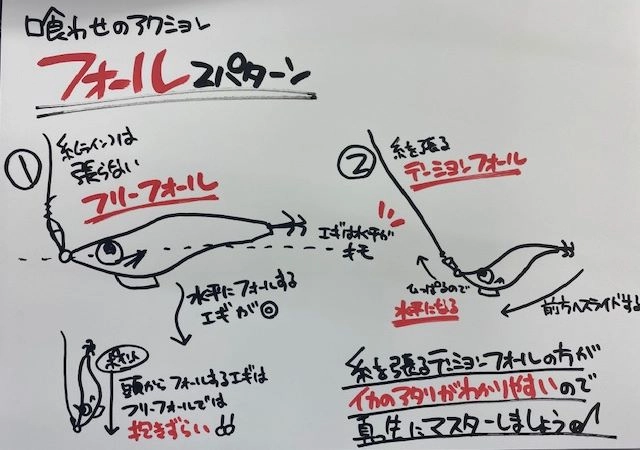 喰わせのアクション
フォール2パターン
① 糸(ライン)は
張らない
フリーフォール
エギは水平が
キモ
水平にフォールする
エギが◎
頭からフォールするエギは
フリーフォールでは
抱きずらい
② 糸を張る
テンションフォール
ひっぱるので
水平になる
前方へスライドする
糸を張るテンションフォールの方が
イカのアタリがわかりやすいので
マスターしましょう。